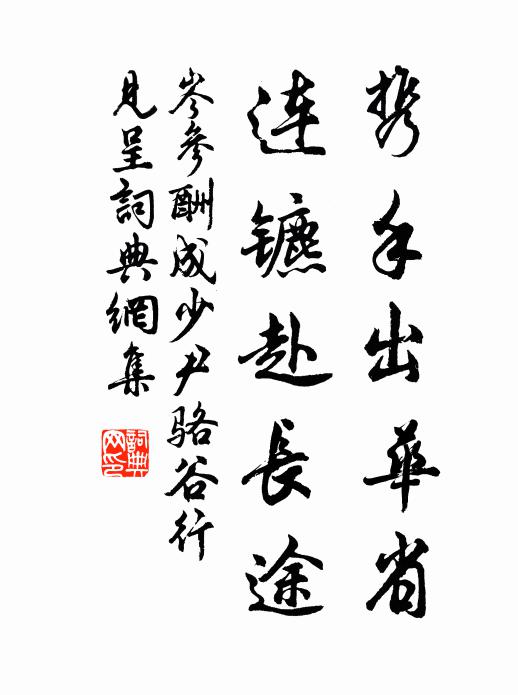 携手出華省
连镳赴長途
岑參酬成少尹骆谷行
見呈詞典網集
詞典
网印